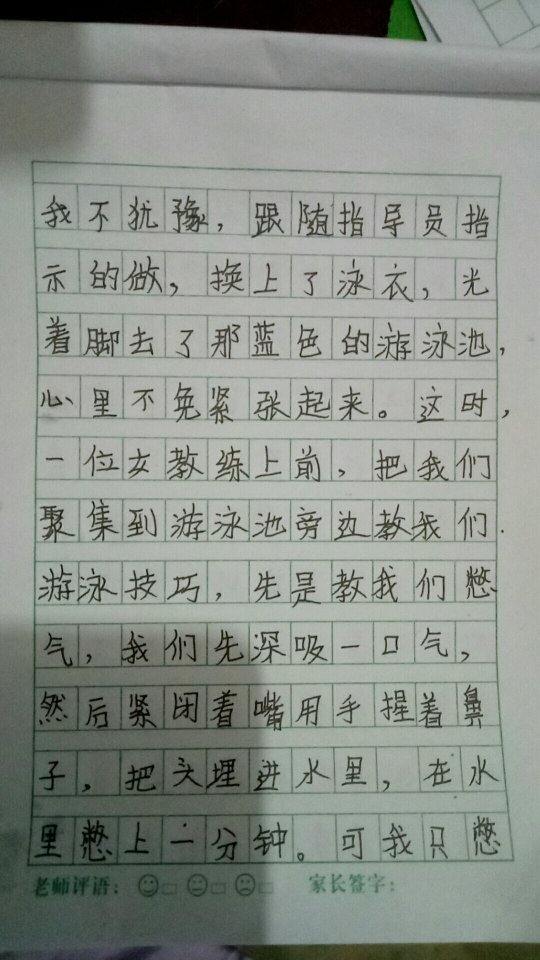 我不犹豫，跟随指导员指
示的做，换上了泳衣，光
着脚去了那蓝色的游泳池，
心里不免紧张起来。这时，
一位女教练上前，把我们
聚集到游泳池旁边教我们
游泳技巧，先是教我们憋
气，我们先深吸一口气，
然后紧闭着嘴用手捏着鼻
子，把头埋进水里，在水
里憋上一分钟。可我只憋
老师评语： 家长签字：